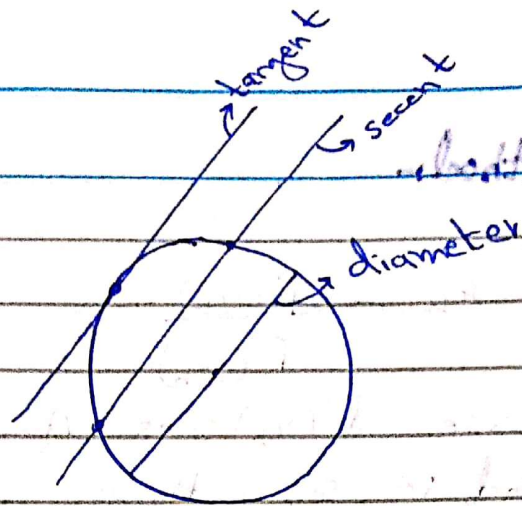 tangent
secent
diameter